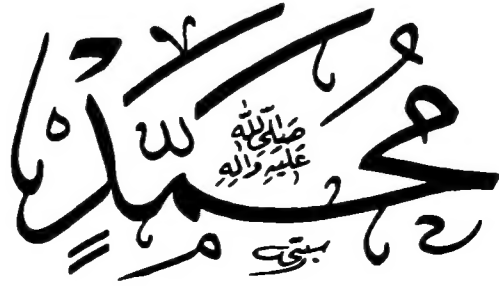 مُحَمَّدٍ
صَلَّی اللّٰهُ
عَلَیْهِ وَالِهِ